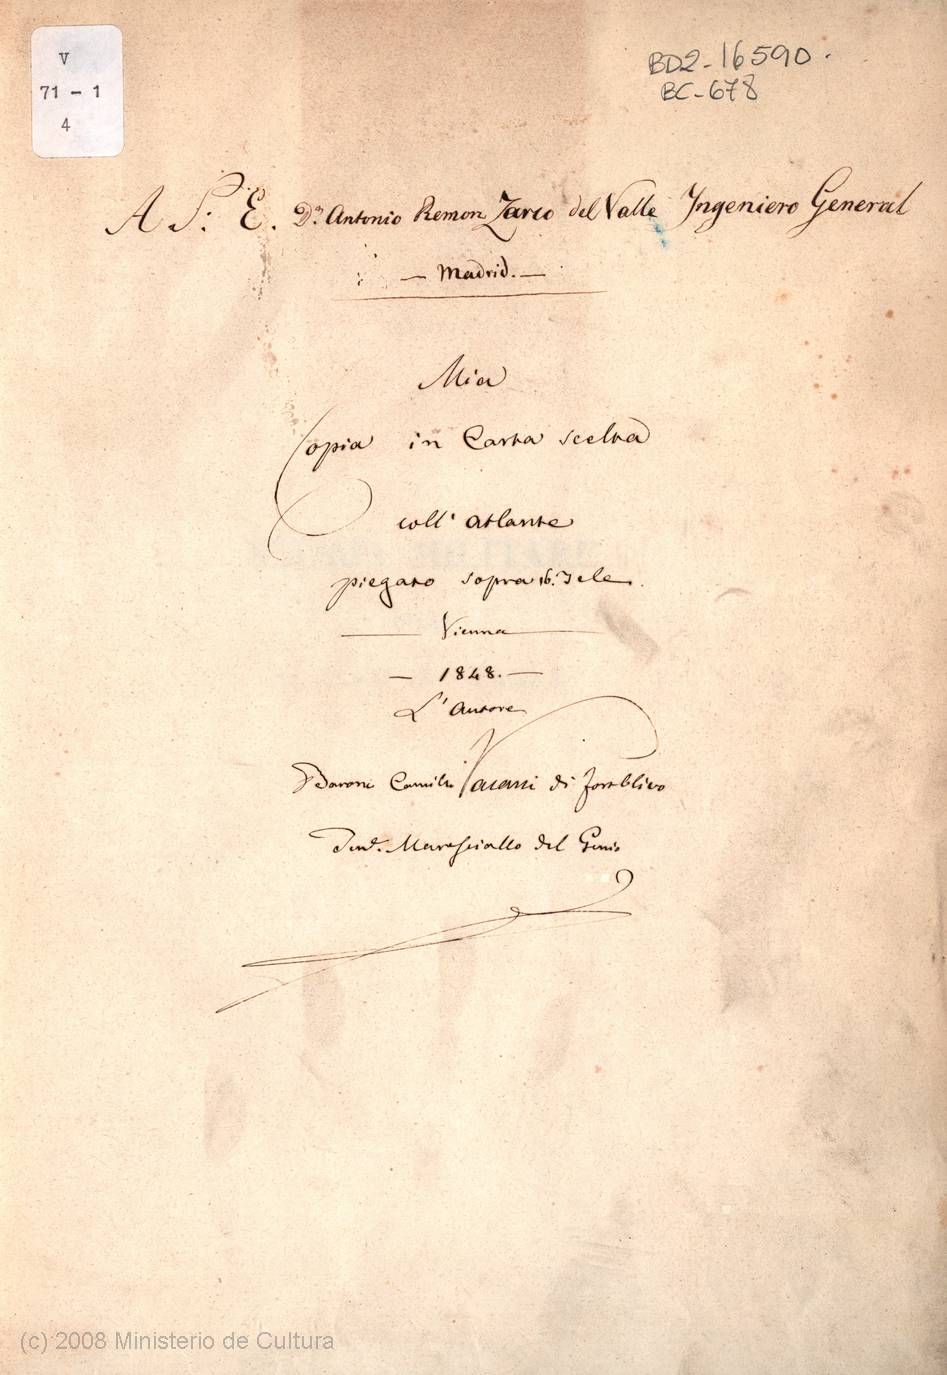 V
71 - 1
4
BD2-16590.
BC-678
A S. E. Dn Antonio Remon Zarco del Valle Ingeniero General
— Madrid. —
Mia
Copia in Carta scelta
coll' atlante
piegato sopra 16. Tele.
Vienna
— 1848. —
L'Autore
Barone Camillo Vacani di Fortolivo
Ten.e Maresciallo del Genio
(c) 2008 Ministerio de Cultura